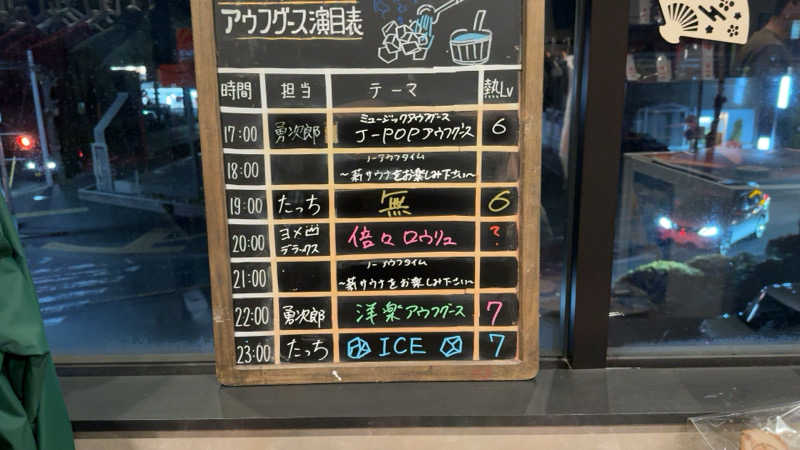 アウフグース演目表
時間 担当 テーマ 熱Lv
17:00 勇次郎 ミュージックアウフグース
J-POPアウフグース 6
18:00 ノーアウフタイム
～薪サウナをお楽しみ下さい～
19:00 たっち 無 6
20:00 ヨメ西
デラックス 倍々ロウリュ ?
21:00 ノーアウフタイム
～薪サウナをお楽しみ下さい～
22:00 勇次郎 洋楽アウフグース 7
23:00 たっち ICE 7